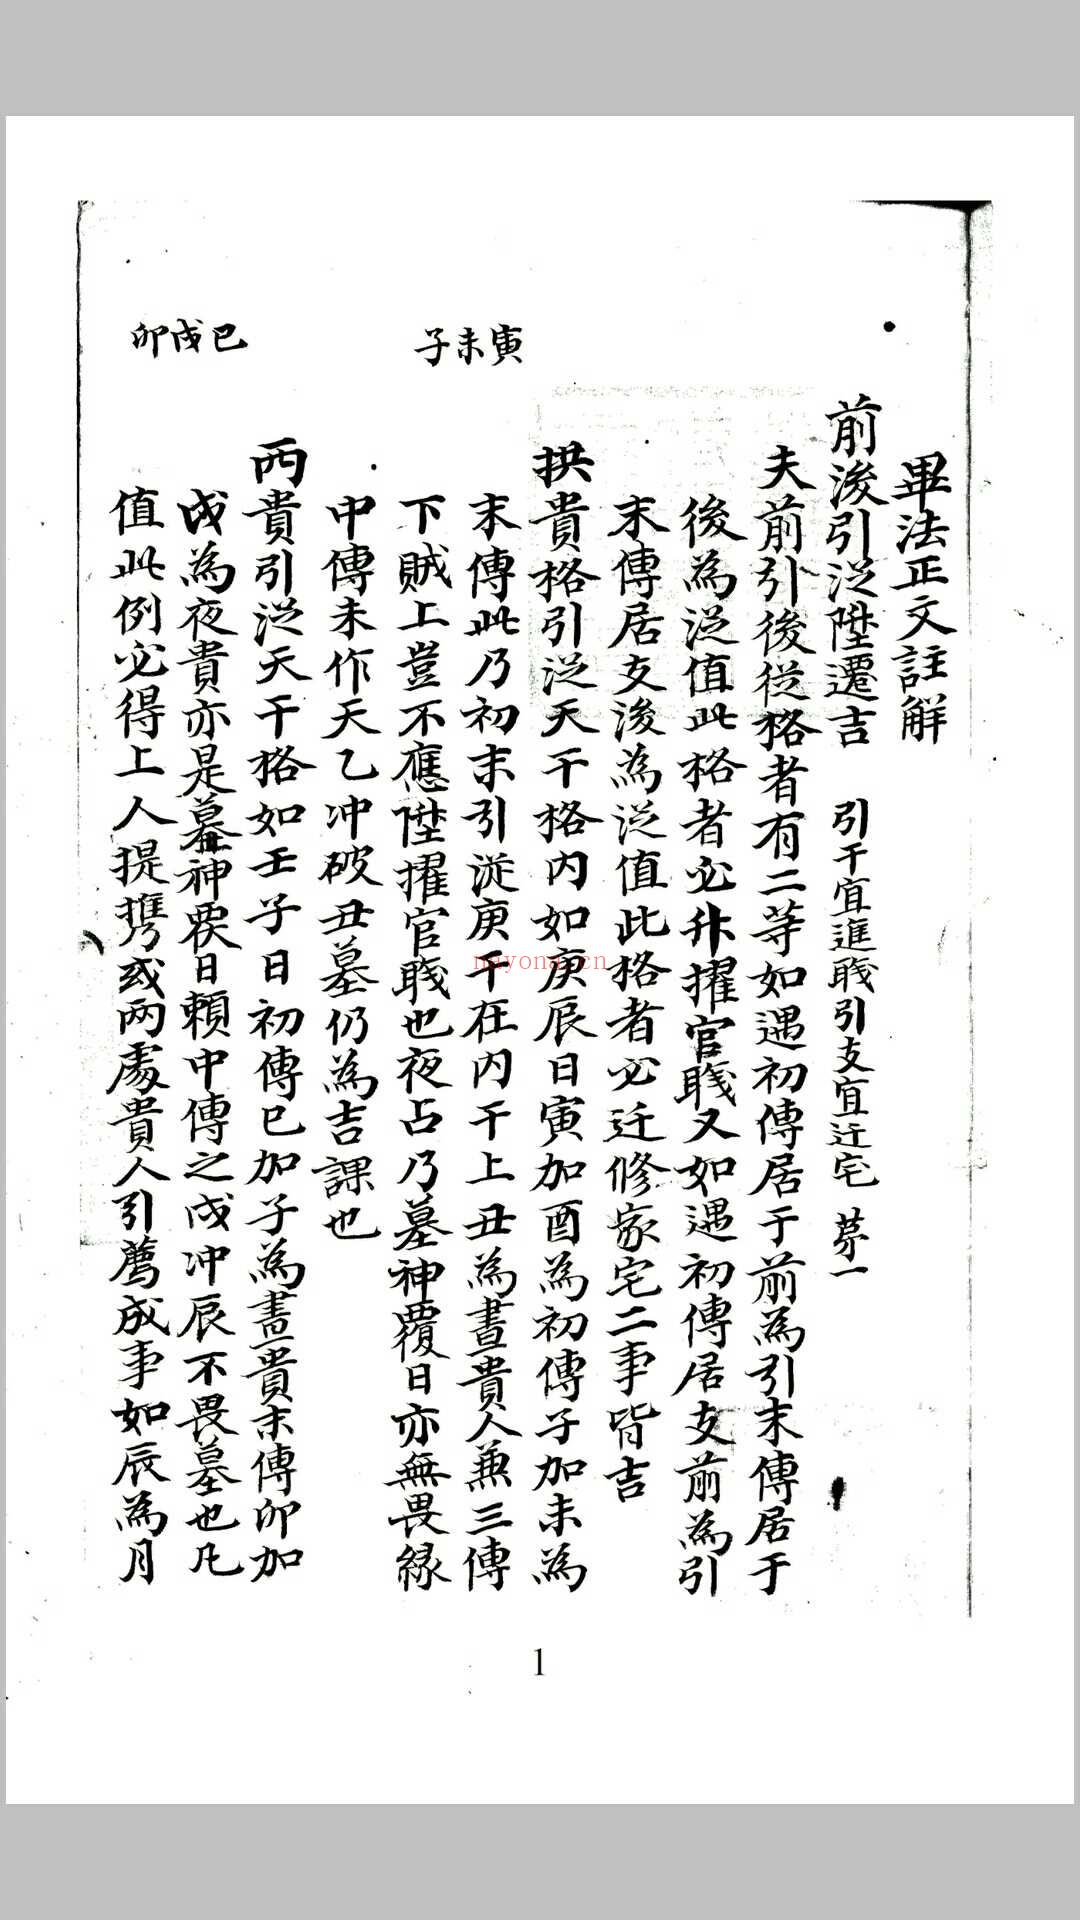 畢法正文註解
前後引從陞遷吉 引干宜進職引支宜迁宅 苐一
夫前引後從格者有二等如遇初傳居于前為引末傳居于
後為從值此格者必升擢官職又如遇初傳居支前為引
末傳居支後為從值此格者必迁修家宅二事皆吉
拱貴格引從天干格內如庚辰日寅加酉為初傳子加未為
末傳此乃初末引從庚干在内干上丑為晝貴人兼三傳
下賊上豈不應陞擢官職也夜占乃墓神覆日亦無畏緣
中傳未作天乙冲破丑墓仍為吉課也
寅未子
兩貴引從天干格如壬子日初傳巳加子為晝貴末傳卯加
戌為夜貴亦是墓神覆日賴中傳之戌冲辰不畏墓也凡
值此例必得上人提攜或兩處貴人引薦成事如辰為月
巳戌卯
nayona.cn
1